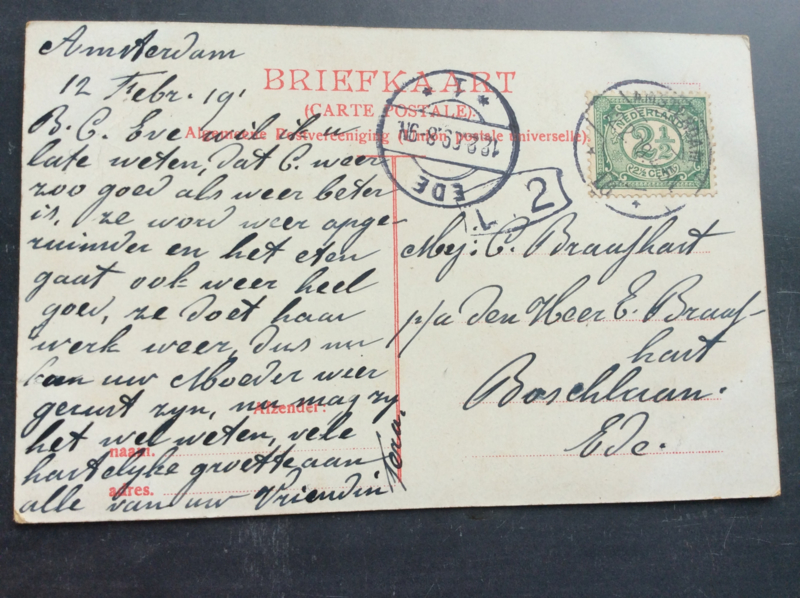 Amsterdam
12 Febr. 19'
BRIEFKAART
(CARTE POSTALE).
Algemeene Postvereeniging (Union postale universelle).
B. C. Eve wil ik u
late weten, dat C. weer
zoo goed als weer beter
is, ze word weer opge
ruimder en het eten
gaat ook weer heel
goed, ze doet haar
werk weer, dus nu
kan uw Moeder weer
gerust zyn, nu mag zy
het wel weten, vele
hartelyke groette aan
alle van uw Vriendin
Afzender:
naam.
adres.
EDE
1
2
1
AMSTERDAM
NEDERLAND
2½
2½ CENT
Mej: C. Braafhart
p/a den Heer E. Braaf-
hart
Boschlaan.
Ede.